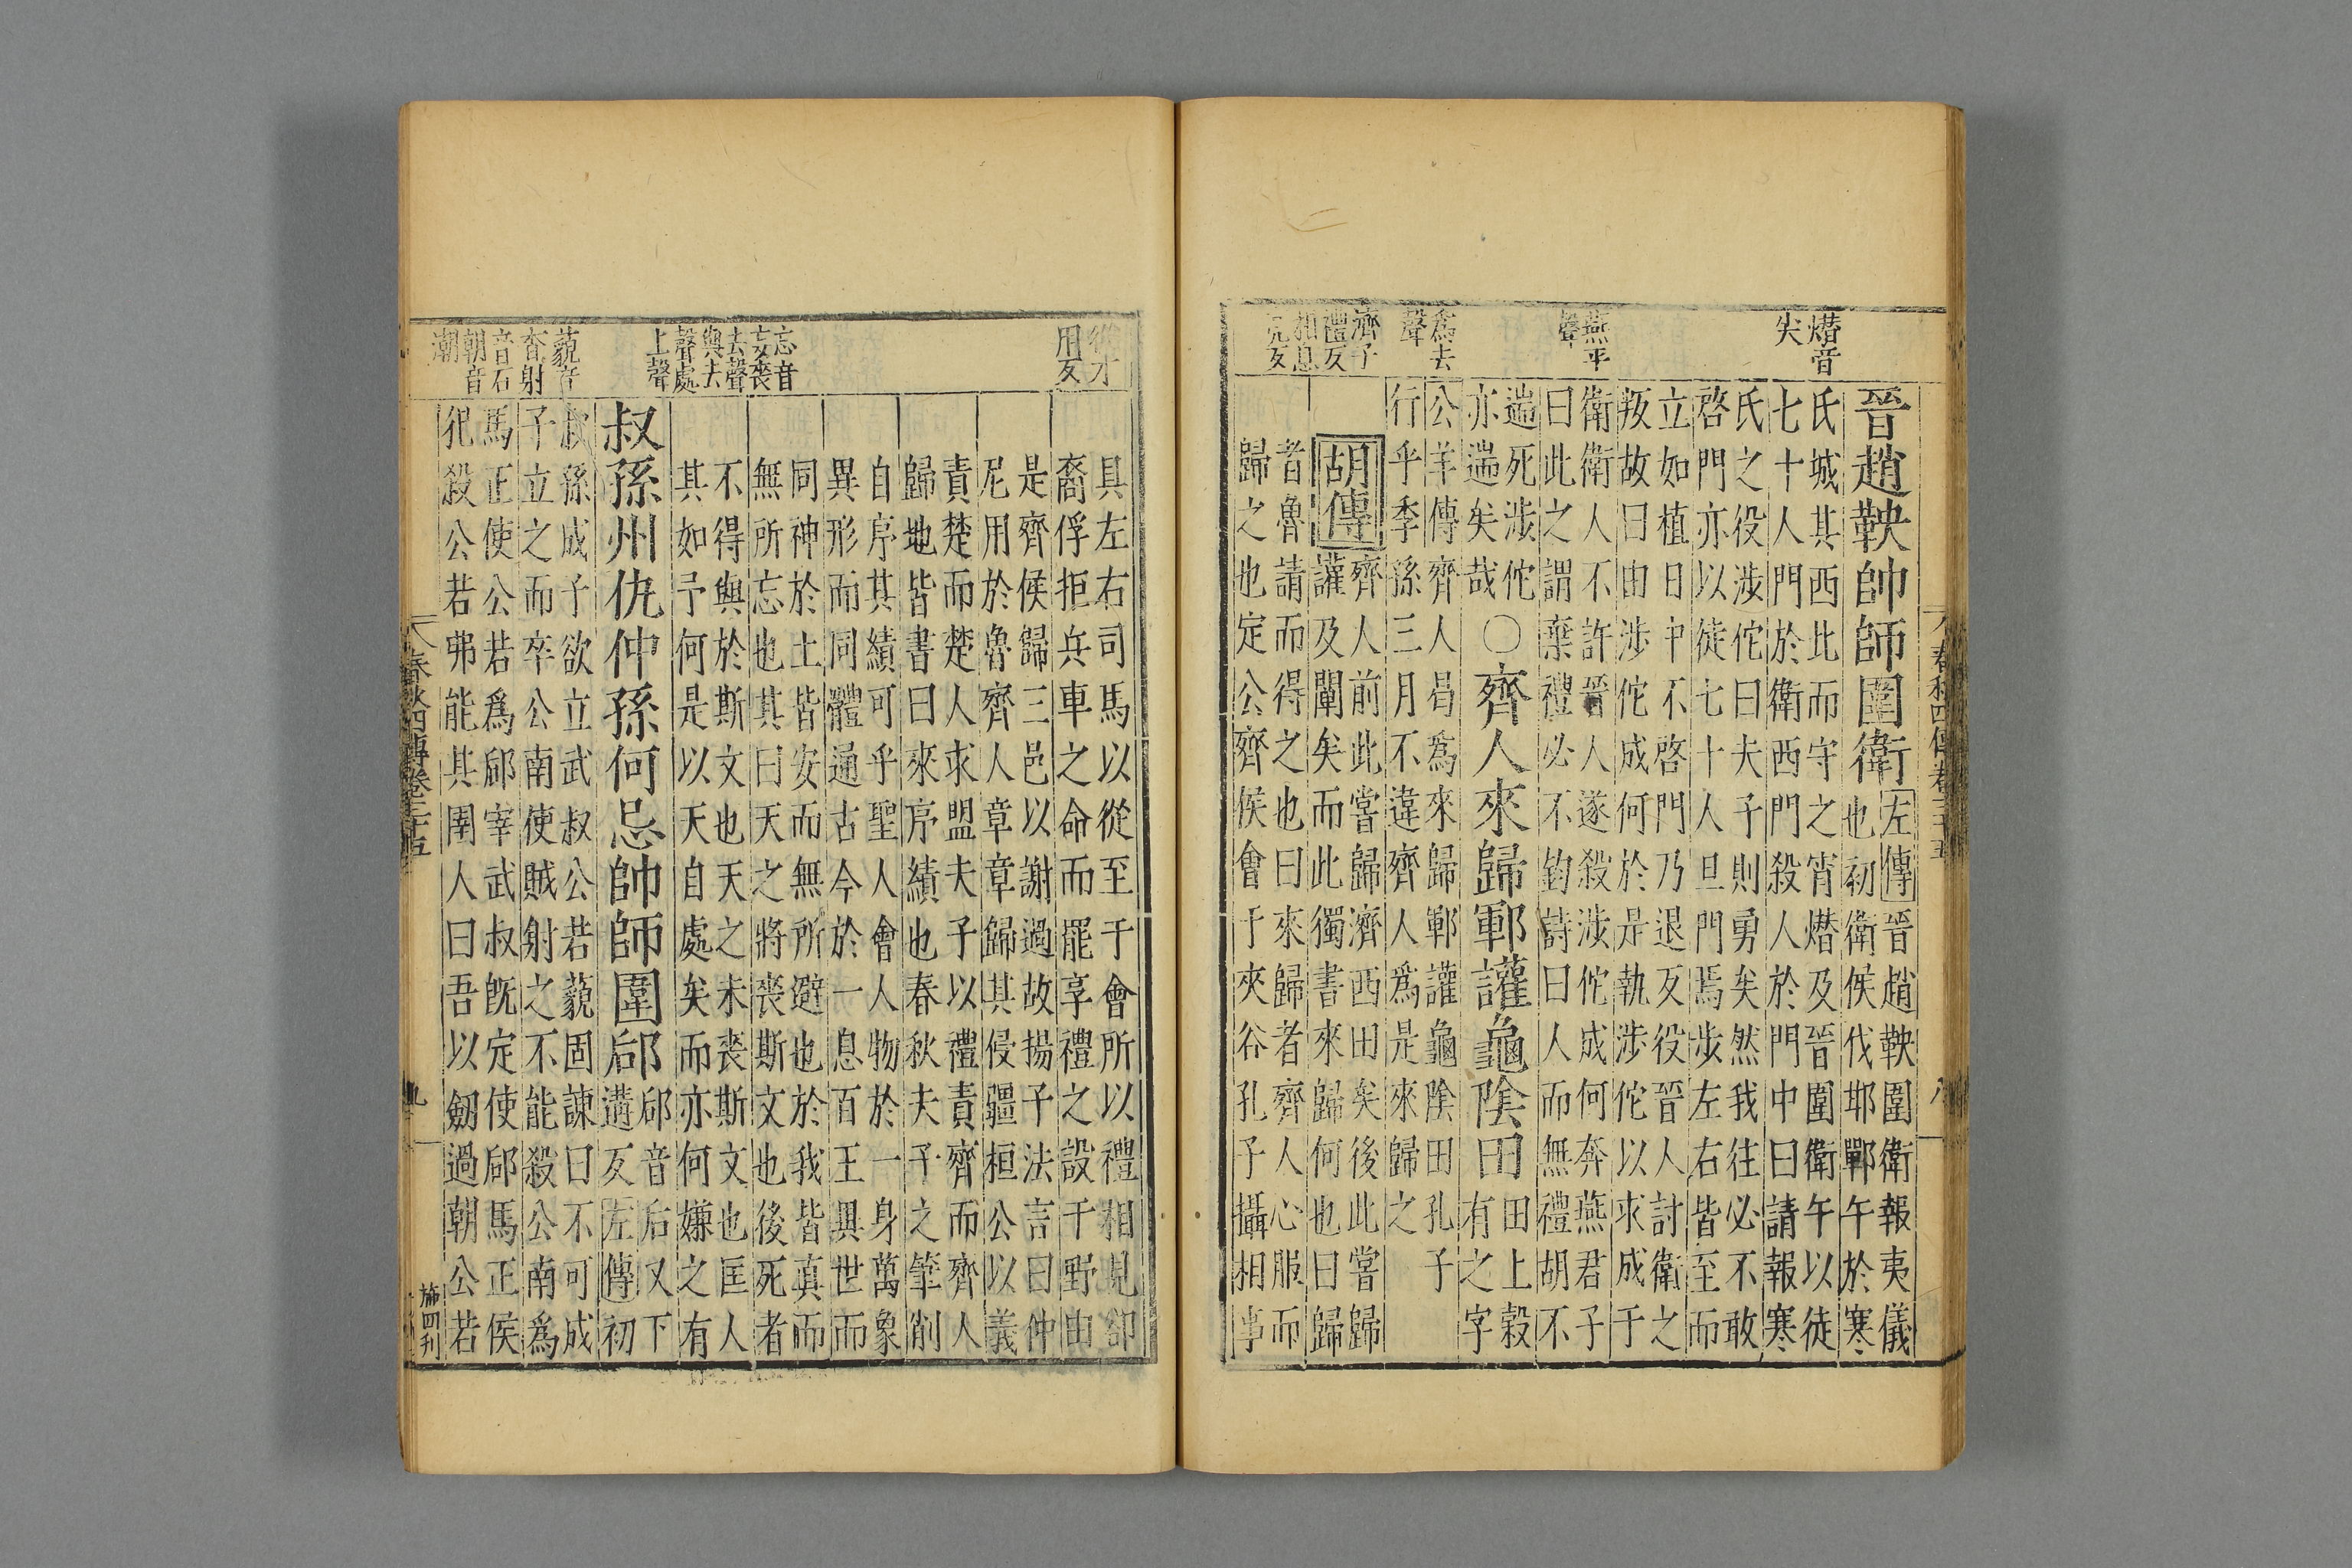 熸音
尖
燕平
聲
為去
聲
濟子
禮反
相息
亮反
晉趙鞅帥師圍衛
左傳晉趙鞅圍衛報夷儀
也初衛侯伐邯鄲午於寒
氏城其西此而守之宵熸及晉圍衛午以徒
七十人門於衛西門殺人於門中曰請報寒
氏之役涉佗曰夫子則勇矣然我往必不敢
啓門亦以徒七十人旦門焉步左右皆至而
立如植日中不啓門乃退反役晉人討衛之
叛故曰由涉佗成何於是執涉佗以求成于
衛衛人不許晉人遂殺涉佗成何奔燕君子
曰此之謂棄禮必不鈞詩曰人而無禮胡不
遄死涉佗
亦遄矣哉
○齊人來歸鄆讙龜陰田
田上穀
有之字
公羊傳齊人曷為來歸鄆讙龜陰田孔子
行乎季孫三月不違齊人為是來歸之
胡傳
齊人前此嘗歸濟西田矣後此嘗歸
讙及闡矣而此獨書來歸何也曰歸
者魯請而得之也曰來歸者齊人心服而
歸之也定公齊侯會于夾谷孔子攝相事
從才
用反
忘音
妄喪
去聲
與去
聲處
上聲
藐音
杳射
音石
朝音
潮
具左右司馬以從至于會所以禮相見卻
裔俘拒兵車之命而罷享禮之設于野由
是齊侯歸三邑以謝過故揚子法言曰仲
尼用於魯齊人章章歸其侵疆桓公以義
責楚而楚人求盟夫子以禮責齊而齊人
歸地皆書曰來序績也春秋夫子之筆削
自序其績可乎聖人會人物於一身萬象
異形而同體通古今於一息百王異世而
同神於土皆安而無所避也於我皆真而
無所忘也其曰天之將喪斯文也後死者
不得與於斯文也天之未喪斯文也匡人
其如予何是以天自處矣而亦何嫌之有
叔孫州仇仲孫何忌帥師圍郈
郈音后又下
遘反左傳初
叔孫成子欲立武叔公若藐固諫曰不可成
子立之而卒公南使賊射之不能殺公南為
馬正使公若為郈宰武叔既定使郈馬正侯
犯殺公若弗能其圉人曰吾以劒過朝公若
春秋四傳卷三十五
九
施四刊